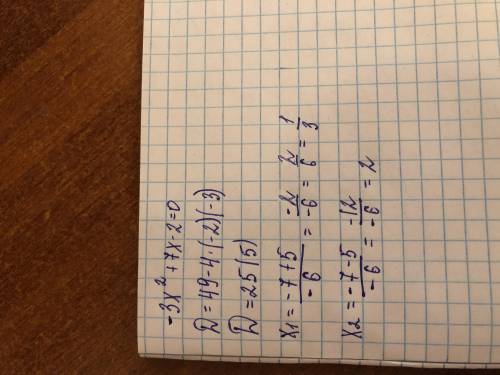 -3x² + 7x - 2 = 0
D = 49 - 4 · (-2)(-3)
D = 25 (5)
x₁ = -7+5/-6 = -2/-6 = 2/6 = 1/3
x₂ = -7-5/-6 = -12/-6 = 2